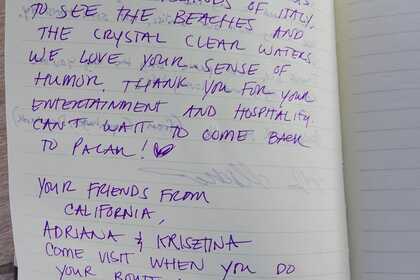 OF ITALY.
TO SEE THE BEACHES AND
THE CRYSTAL CLEAR WATERS.
WE LOVE YOUR SENSE OF
HUMOR. THANK YOU FOR YOUR
ENTERTAINMENT AND HOSPITALITY.
CAN'T WAIT TO COME BACK
TO PALAU! ♡
YOUR FRIENDS FROM
CALIFORNIA,
ADRIANA & KRISZTINA
COME VISIT WHEN YOU DO
YOUR